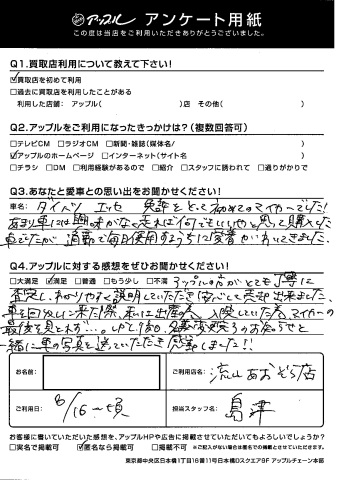 アップル アンケート用紙
この度は当店をご利用いただきありがとうございました。
Q1.買取店利用について教えて下さい!
☑買取店を初めて利用
□過去に買取店を利用したことがある
利用した店舗: アップル( )店 その他( )
Q2.アップルをご利用になったきっかけは?(複数回答可)
□テレビCM □ラジオCM □新聞・雑誌(媒体名/ )
☑アップルのホームページ □インターネット(サイト名 )
□チラシ □DM □利用経験があるので □紹介 □スタッフに誘われて □通りがかりで
Q3.あなたと愛車との思い出をお聞かせください!
車名: ダイハツ エッセ 免許をとって初めてのマイカーでした!
あまり車には興味がなく、走れば何でもいいやと思って購入した
車でしたが、通勤で毎日使用するうちに愛着がわいてきました。
Q4.アップルに対する感想をぜひお聞かせください!
□大満足 ☑満足 □普通 □もう少し □不満 アップルの方がとても丁寧に
査定し、わかりやすく説明していただき安心して売却出来ました。
車を引取りに来た際、私は出産の為、入院していた為マイカーの
最後を見とれず…。しかし後日、名義変更完了のお知らせと
一緒に車の写真を送っていただき感動しました!!
お名前:
ご利用店名: 流山おおぞら店
ご利用日: 8/16〜頃
担当スタッフ名: 島津
お客様に書いていただいた感想を、アップルHPや広告に掲載させていただいてもよろしいでしょうか?
□実名で掲載可 ☑匿名なら掲載可 □掲載不可 ※ご記入がない場合は匿名での掲載とさせていただきます。
東京都中央区日本橋1丁目16番11号日本橋Dスクエア9F アップルチェーン本部